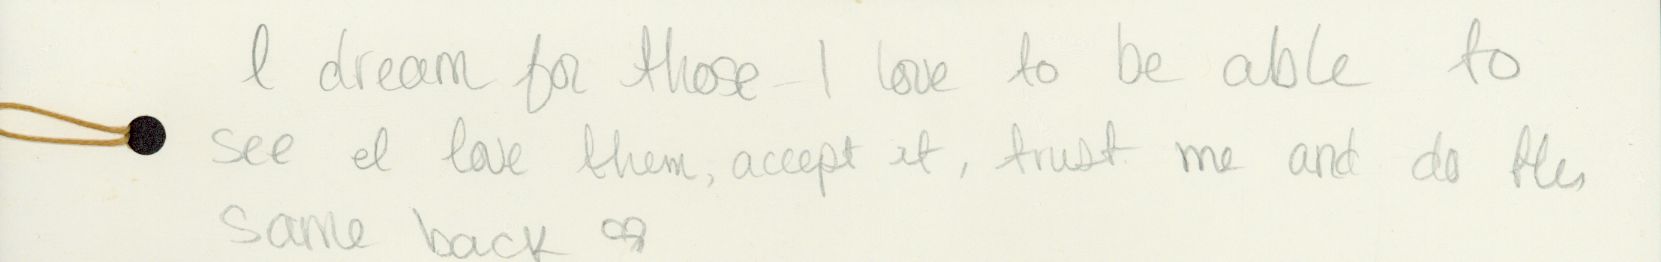 I dream for those I love to be able to
see I love them, accept it, trust me and do the
same back